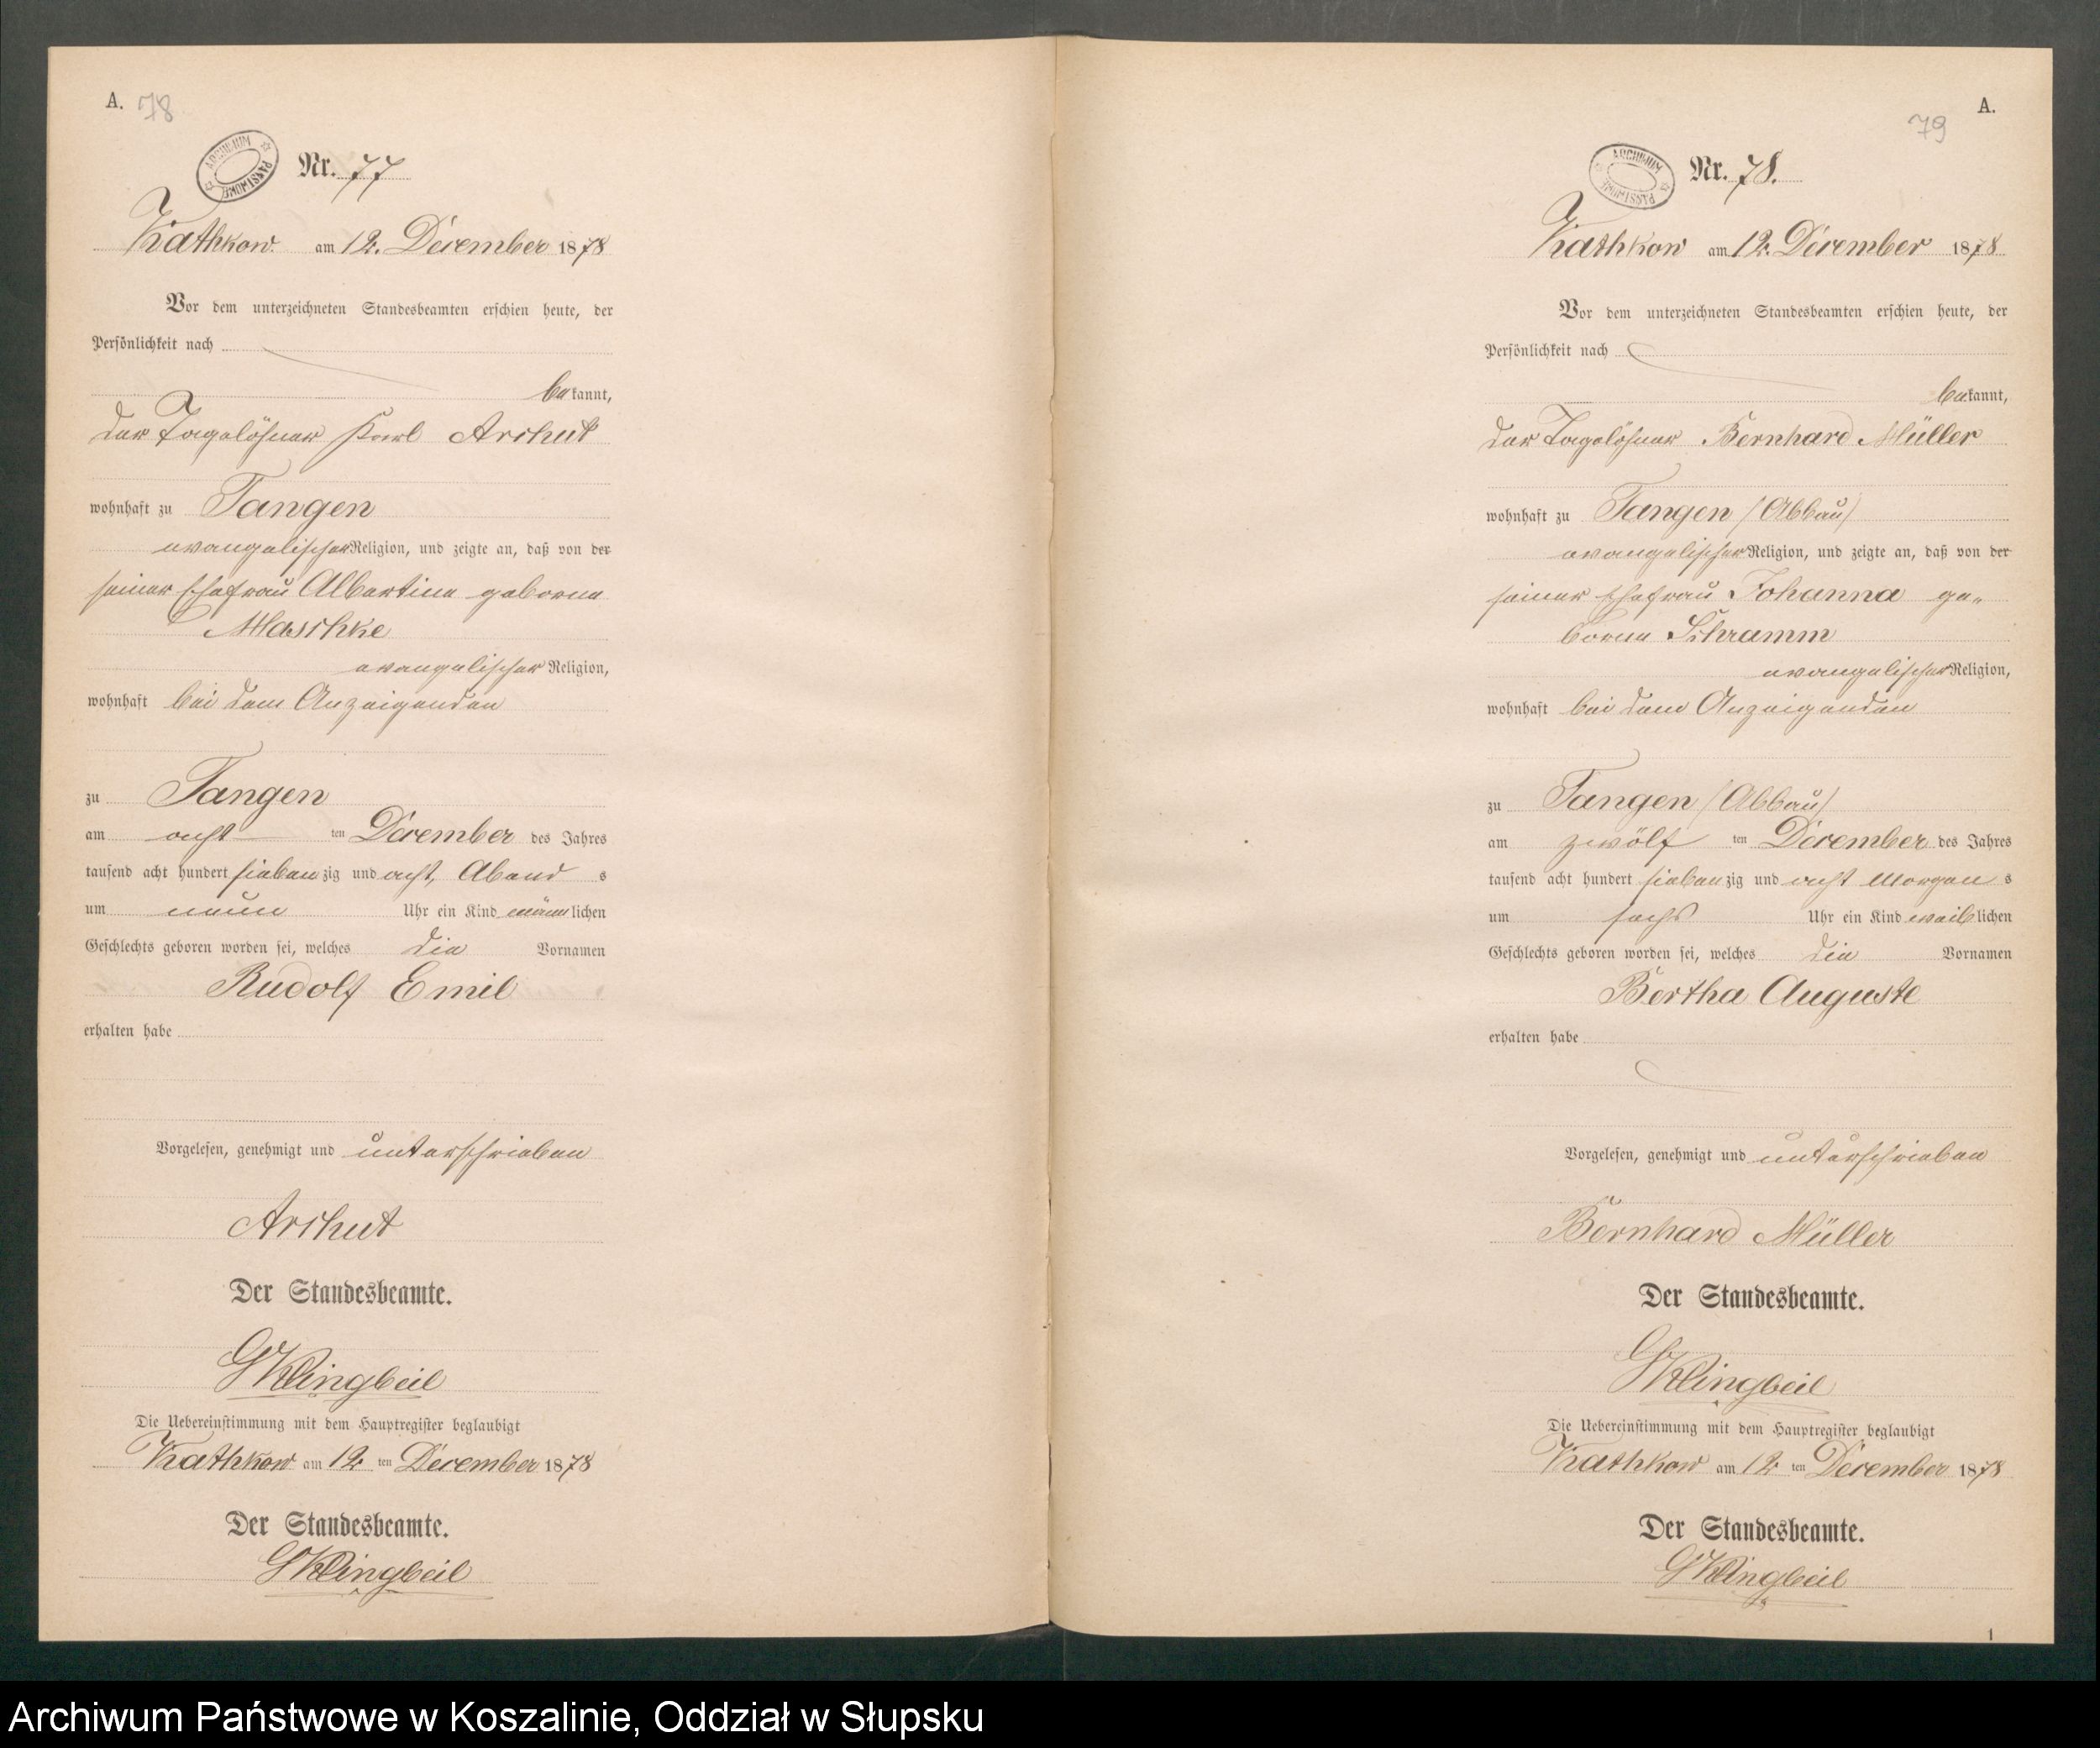 A. 78
ARCHIWUM PAŃSTWOWE
Nr. 77
Kathkow am 12. December 1878
Vor dem unterzeichneten Standesbeamten erschien heute, der
Persönlichkeit nach
bekannt,
der Tagelöhner Karl Archut
wohnhaft zu Tangen
evangelischer Religion, und zeigte an, daß von der
seiner Ehefrau Albertine geborne
Maschke
evangelischer Religion,
wohnhaft bei dem Anzeigenden
zu Tangen
am acht ten December des Jahres
tausend acht hundert siebenzig und acht, Abends
um neun Uhr ein Kind männlichen
Geschlechts geboren worden sei, welches die Vornamen
Rudolf Emil
erhalten habe
Vorgelesen, genehmigt und unterschrieben
Archut
Der Standesbeamte.
GKlingbeil
Die Uebereinstimmung mit dem Hauptregister beglaubigt
Kathkow am 12 ten December 1878
Der Standesbeamte.
GKlingbeil
A.
79
ARCHIWUM PAŃSTWOWE
Nr. 78.
Kathkow am 12. December 1878
Vor dem unterzeichneten Standesbeamten erschien heute, der
Persönlichkeit nach
bekannt,
der Tagelöhner Bernhard Müller
wohnhaft zu Tangen (Abbau)
evangelischer Religion, und zeigte an, daß von der
seiner Ehefrau Johanna ge„
borne Schramm
evangelischer Religion,
wohnhaft bei dem Anzeigenden
zu Tangen (Abbau)
am zwölf ten December des Jahres
tausend acht hundert siebenzig und acht Morgens
um sechs Uhr ein Kind weiblichen
Geschlechts geboren worden sei, welches die Vornamen
Bertha Auguste
erhalten habe
Vorgelesen, genehmigt und unterschrieben
Bernhard Müller
Der Standesbeamte.
GKlingbeil
Die Uebereinstimmung mit dem Hauptregister beglaubigt
Kathkow am 12 ten December 1878
Der Standesbeamte.
GKlingbeil
1
Archiwum Państwowe w Koszalinie, Oddział w Słupsku